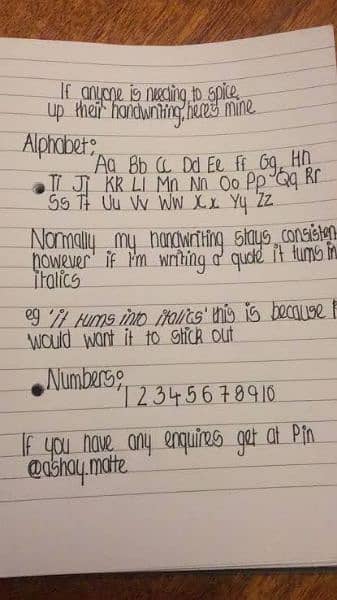 If anyone is needing to spice
up their handwriting, heres mine
Alphabet;
Aa Bb Cc Dd Ee Ff Gg Hh
Ii Jj Kk Ll Mm Nn Oo Pp Qq Rr
Ss Tt Uu Vv Ww Xx Yy Zz
Normally my handwriting stays consisten
however if I'm writing a quote it turns in
italics
eg 'it turns into italics' this is because I
would want it to stick out
Numbers;
1 2 3 4 5 6 7 8 9 10
If you have any enquires get at Pin
@ashay.matte